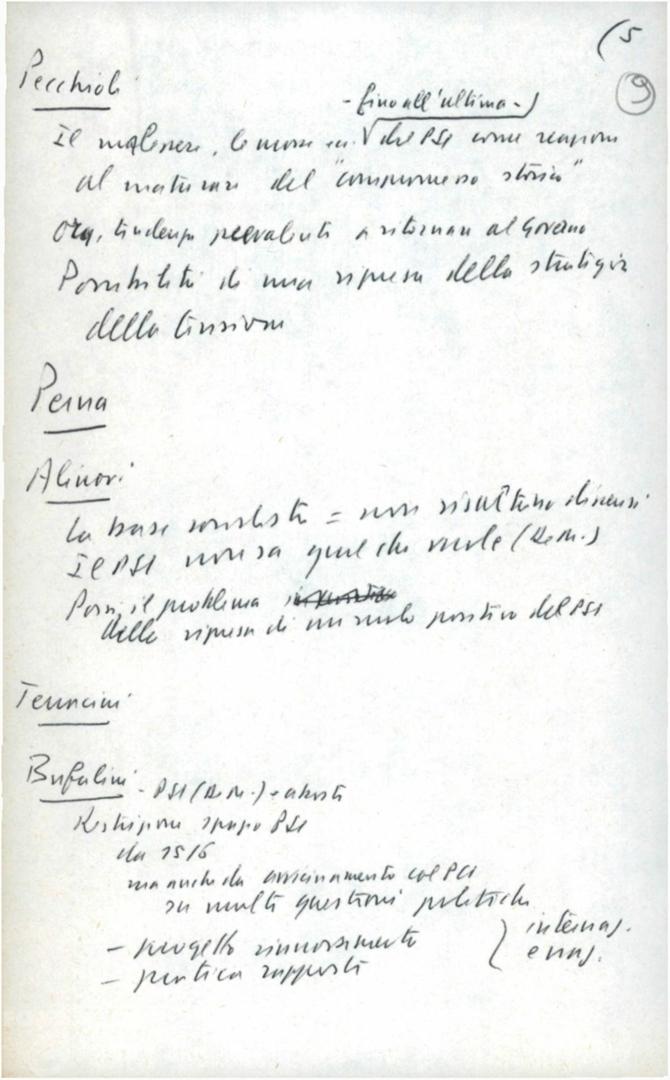 (5
9
Pecchioli
- fino all'ultima -
Il malessere, le mosse del PSI come reazioni
al maturare del "compromesso storico"
Ora, tendenze prevalenti a ritornare al Governo
Possibilità di una ripresa della strategia
della tensione
Perna
Alinovi
La base socialista = non risultano dissensi
Il PSI non sa quel che vuole (De M.)
Porsi, il problema
della ripresa di un ruolo positivo del PSI
Terracini
Bufalini - PSI (De M.)
Restrizione spazio PSI
da 15/6
ma anche da avvicinamento col PCI
su molte questioni politiche
- progetto rinnovamento
- pratica rapporti
internaz.
e naz.